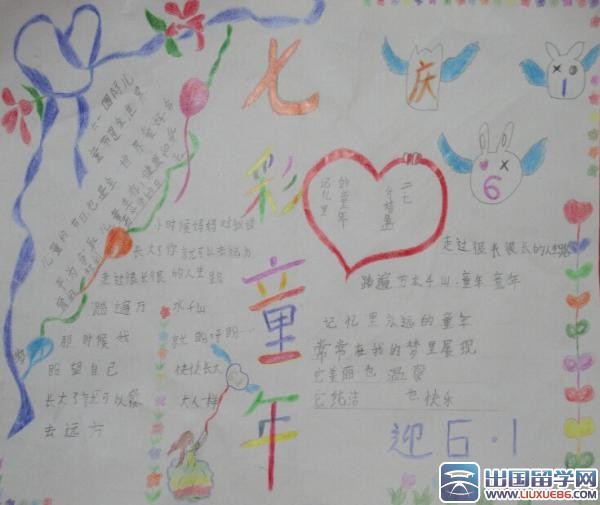 七彩童年
庆
1
6
六一国际儿
童节是全世界
小时候妈妈对我说
长大了你就可以去远方
走过很长很长的人生路
踏遍万水千山
那时候我
就盼呀盼…
盼望自己
快快长大
长大了就可以像
大人一样
去远方
记忆里
的童年
走过很长很长的人生路
踏遍万水千山·童年童年
记忆里永远的童年
常常在我的梦里展现
它美丽也温馨
它纯洁 也快乐
迎6·1
出国留学网
www.liuxue86.com